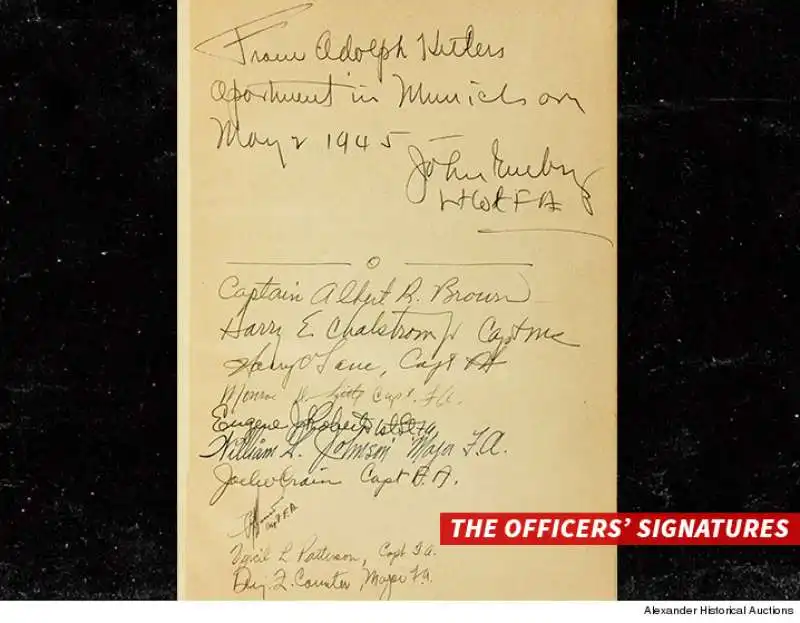 From Adolph Hitlers
apartment in Munich on
May 2 1945
John
Lt Col F A
Captain Albert R. Brown
Harry E Chalstrom Jr Capt MC
Harry O Lane, Capt FA
Monroe Capt. FA.
Eugene J Roberts 1st Lt FA
William L. Johnson Major F.A.
Capt F.A.
Capt FA
Virgil L Patterson, Capt F.A.
Benj. F. Counter, Major F.A.
THE OFFICERS' SIGNATURES
Alexander Historical Auctions